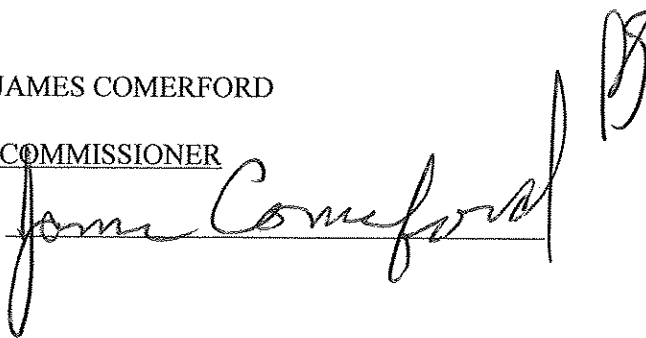 JAMES COMERFORD
COMMISSIONER
James Comerford